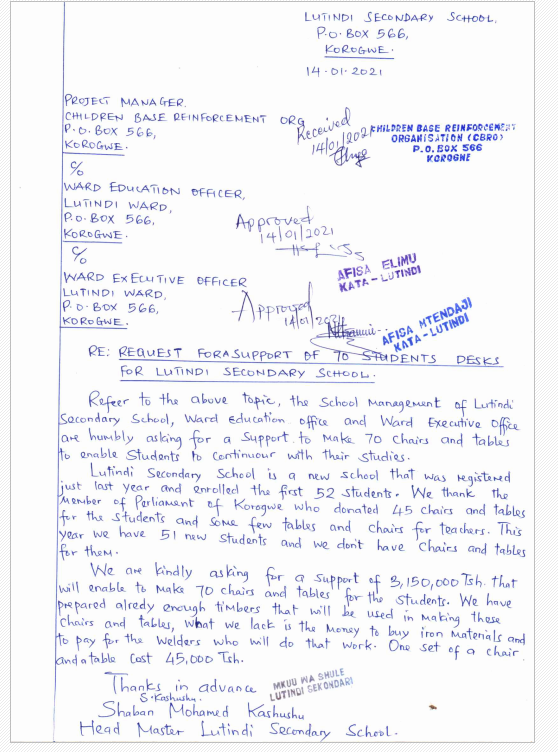 LUTINDI SECONDARY SCHOOL,
P.O. BOX 566,
KOROGWE.
14.01.2021
PROJECT MANAGER.
CHILDREN BASE REINFORCEMENT ORG
P.O. BOX 566,
KOROGWE.
Received
14/01/2021
CHILDREN BASE REINFORCEMENT
ORGANISATION (CBRO)
P.O. BOX 566
KOROGWE
c/o
WARD EDUCATION OFFICER,
LUTINDI WARD,
P.O. BOX 566,
KOROGWE.
Approved
14/01/2021
AFISA ELIMU
KATA - LUTINDI
c/o
WARD EXECUTIVE OFFICER
LUTINDI WARD,
P.O. BOX 566,
KOROGWE.
Approved
14/01/2021
AFISA MTENDAJI
KATA - LUTINDI
RE: REQUEST FOR A SUPPORT OF 70 STUDENTS DESKS
FOR LUTINDI SECONDARY SCHOOL.
Refeer to the above topic, the School Management of Lutindi
Secondary School, Ward Education office and Ward Executive Office
are humbly asking for a Support to make 70 Chairs and tables
to enable Students to continuour with their Studies.
Lutindi Secondary School is a new school that was registered
just last year and enrolled the first 52 students. We thank the
Member of Perliament of Korogwe who donated 45 chairs and tables
for the Students and Some few tables and Chairs for teachers. This
year we have 51 new Students and we don't have Chairs and tables
for them.
We are kindly asking for a Support of 3,150,000 Tsh. that
will enable to Make 70 chairs and tables for the Students. We have
prepared alredy enough timbers that will be used in making these
Chairs and tables, What we lack is the Money to buy iron Materials and
to pay for the Welders who will do that work. One set of a chair
and a table Cost 45,000 Tsh.
Thanks in advance
S. Kashushu.
MKUU WA SHULE
LUTINDI SEKONDARI
Shaban Mohamed Kashushu
Head Master Lutindi Secondary School.